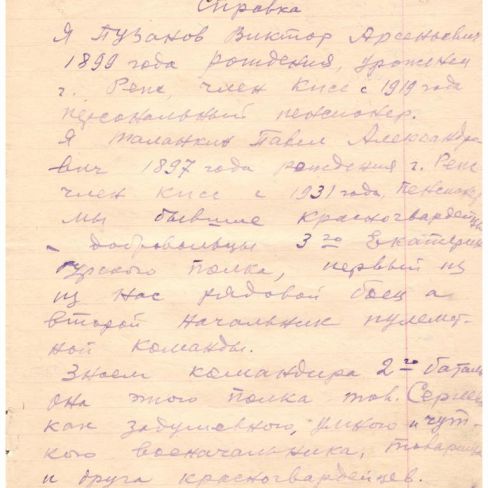 Справка
Я Пузанов Виктор Арсеньевич
1899 года рождения, уроженец
г. Реж, член КПСС с 1919 года
персональный пенсионер.
Я Таланкин Павел Александро
вич 1897 года рождения г. Реж
член КПСС с 1931 года, пенсионер
мы бывшие красногвардейцы
- добровольцы 3го Екатерин
бургского полка, первый из
из нас рядовой боец а
второй начальник пулемет-
ной команды.
Знаем командира 2го баталь
она этого полка тов. Сергеева
как задушевного, умного и чут-
кого военачальника, товарища
и друга красногвардейцев.